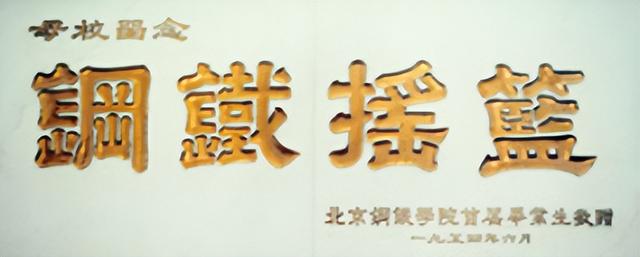 母校留念
鋼鐵摇籃
北京鋼鐵學院首届畢業生敬贈
一九五四年六月